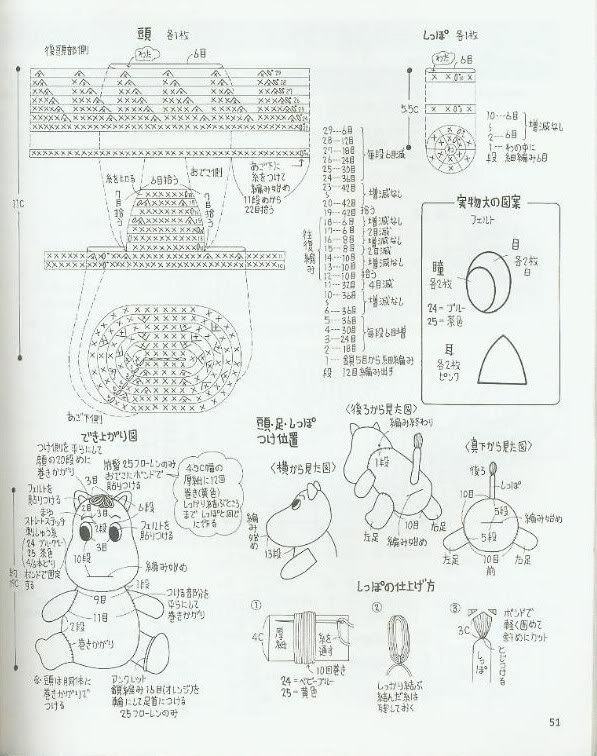 頭 各1枚
後頭部側
わた
6目
11C
糸を切る
6目拾う
おでこ側
7目拾う
7目拾う
あご下に
糸をつけて
編み始め
11段めから
22目拾う
あご下側
29…6目
28…12目
27…18目
26…24目
25…30目
24…36目
毎段6目減
23…42目
増減なし
20…42目
19…42目 拾う
18…6目 増減なし
17…6目 2目減
16…8目 増減なし
15…8目 2目減
14…10目 増減なし
13…10目
12…10目 拾う
11…32目 4目減
10…36目
増減なし
6…36目
5…36目
4…30目
3…24目
2…18目
毎段6目増
1…鎖5目から細編み
段 12目編み出す
往復編み
しっぽ 各1枚
わた
6目
5.5C
10…6目
2…6目
増減なし
1…わの中に
段 細編み6目
実物大の図案
フェルト
目
各2枚
白
瞳
各2枚
24=ブルー
25=茶色
耳
各2枚
ピンク
でき上がり図
つけ側を平らにして
顔の20段めに
巻きかがり
前髪25フローレンのみ
おでこにボンドで
貼りつける
4.5C幅の
厚紙に12回
巻き(黄色)
しっかり結ぶところ
まで しっぽと同じ
に作る
フェルトを
貼りつける
まゆ
ストレートステッチ
刺しゅう糸
24 ブルーグレー
25 茶色
ボンドで固定
する
3目
6段
2目
3目
2段
3目
10段
フェルトを
貼りつける
編み始め
1段
つける部分を
平らにして
巻きかがり
9目
11目
2段
巻きかがり
※頭は胴体に
巻きかがりで
つける
アンクレット
鎖編み16目(オレンジ)を
輪にして足首につける
25フローレンのみ
頭・足・しっぽ
つけ位置
〈横から見た図〉
編み始め
13段
〈後ろから見た図〉
編み終わり
1段
10目
左足
右足
編み始め
〈真下から見た図〉
後ろ
しっぽ
10目
5段
編み始め
5段
左足
右足
10目
前
しっぽの仕上げ方
①
4C
厚紙
糸を通す
10回巻き
24=ベビーブルー
25=黄色
②
しっかり結ぶ
結んだ糸は
残しておく
③
3C
ボンドで
軽く固めて
斜めにカット
とじつける
しっぽ
51